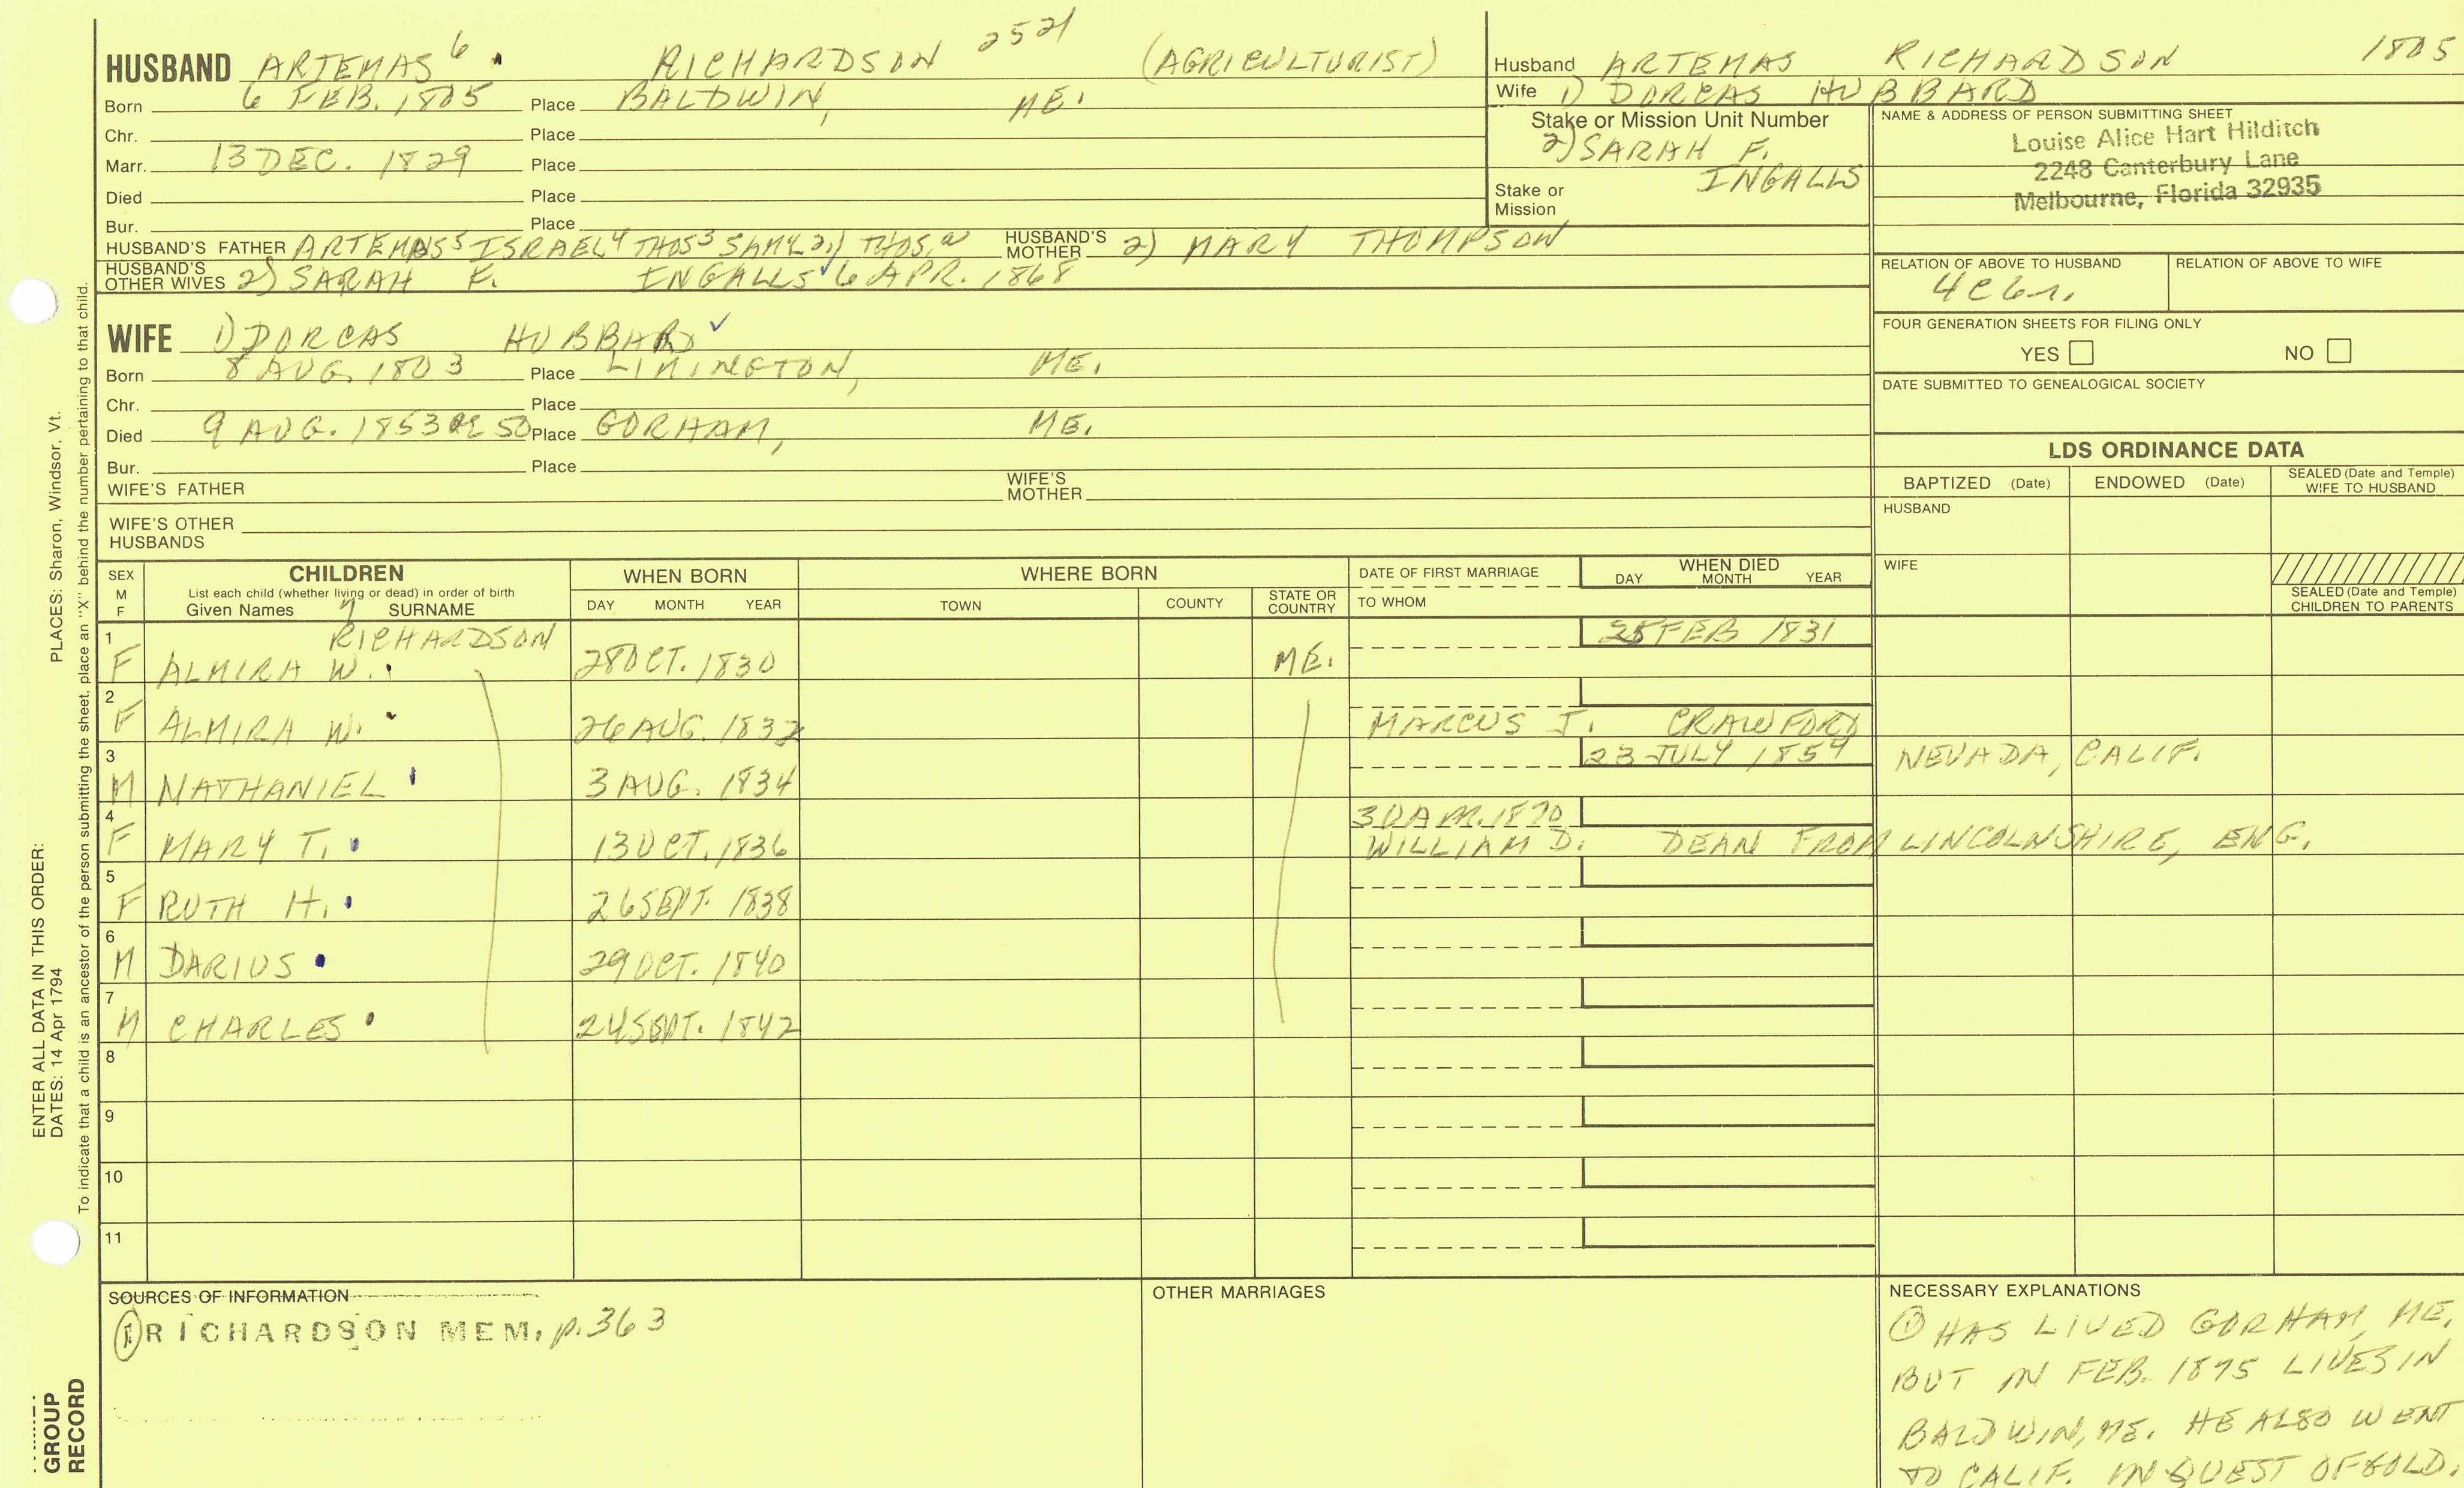 HUSBAND ARTEMAS 6 RICHARDSON 2521 (AGRICULTURIST)
Born 6 FEB. 1805 Place BALDWIN, ME.
Chr. Place
Marr. 13 DEC. 1829 Place
Died Place
Bur. Place
HUSBAND'S FATHER ARTEMAS5 ISRAEL4 THOS3 SAML2,) THOS. HUSBAND'S MOTHER 2) MARY THOMPSON
HUSBAND'S OTHER WIVES 2) SARAH F. INGALLS 6 APR. 1868
Husband ARTEMAS RICHARDSON 1805
Wife 1) DORCAS HUBBARD
Stake or Mission Unit Number
2) SARAH F.
INGALLS
Stake or Mission
NAME & ADDRESS OF PERSON SUBMITTING SHEET
Louise Alice Hart Hilditch
2248 Canterbury Lane
Melbourne, Florida 32935
RELATION OF ABOVE TO HUSBAND RELATION OF ABOVE TO WIFE
4c6r.
FOUR GENERATION SHEETS FOR FILING ONLY
YES NO
DATE SUBMITTED TO GENEALOGICAL SOCIETY
WIFE 1) DORCAS HUBBARD
Born 8 AUG. 1803 Place LIMINGTON, ME.
Chr. Place
Died 9 AUG. 1853 AE 50 Place GORHAM, ME.
Bur. Place
WIFE'S FATHER WIFE'S MOTHER
WIFE'S OTHER HUSBANDS
LDS ORDINANCE DATA
BAPTIZED (Date) ENDOWED (Date) SEALED (Date and Temple) WIFE TO HUSBAND
HUSBAND
WIFE
SEALED (Date and Temple) CHILDREN TO PARENTS
SEX M F CHILDREN WHEN BORN WHERE BORN DATE OF FIRST MARRIAGE WHEN DIED
List each child (whether living or dead) in order of birth DAY MONTH YEAR
Given Names 7 SURNAME DAY MONTH YEAR TOWN COUNTY STATE OR COUNTRY TO WHOM
1 RICHARDSON 25 FEB 1831
F ALMIRA W. 28 OCT. 1830 ME.
2
F ALMIRA W. 26 AUG. 1832 MARCUS J. CRAWFORD
3 23 JULY 1854 NEVADA, CALIF.
M NATHANIEL 3 AUG. 1834
4 30 APR. 1870
F MARY T. 13 OCT. 1836 WILLIAM D. DEAN FROM LINCOLNSHIRE, ENG.
5
F RUTH H. 26 SEPT. 1838
6
M DARIUS 29 OCT. 1840
7
M CHARLES 24 SEPT. 1842
8
9
10
11
SOURCES OF INFORMATION
1 RICHARDSON MEM. p. 363
OTHER MARRIAGES
NECESSARY EXPLANATIONS
1 HAS LIVED GORHAM, ME.
BUT IN FEB. 1875 LIVES IN
BALDWIN, ME. HE ALSO WENT
TO CALIF. IN QUEST OF GOLD.
ENTER ALL DATA IN THIS ORDER:
DATES: 14 Apr 1794 PLACES: Sharon, Windsor, Vt.
To indicate that a child is an ancestor of the person submitting the sheet, place an "X" behind the number pertaining to that child.
GROUP
RECORD